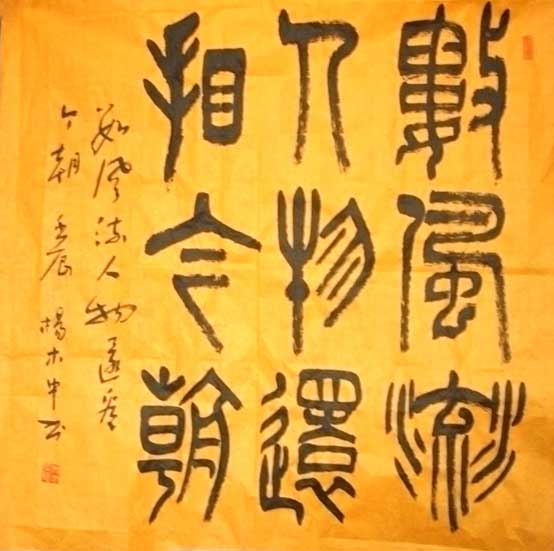 數風流
人物還
看今朝
數風流人物還看
今朝 壬辰 楊木中书